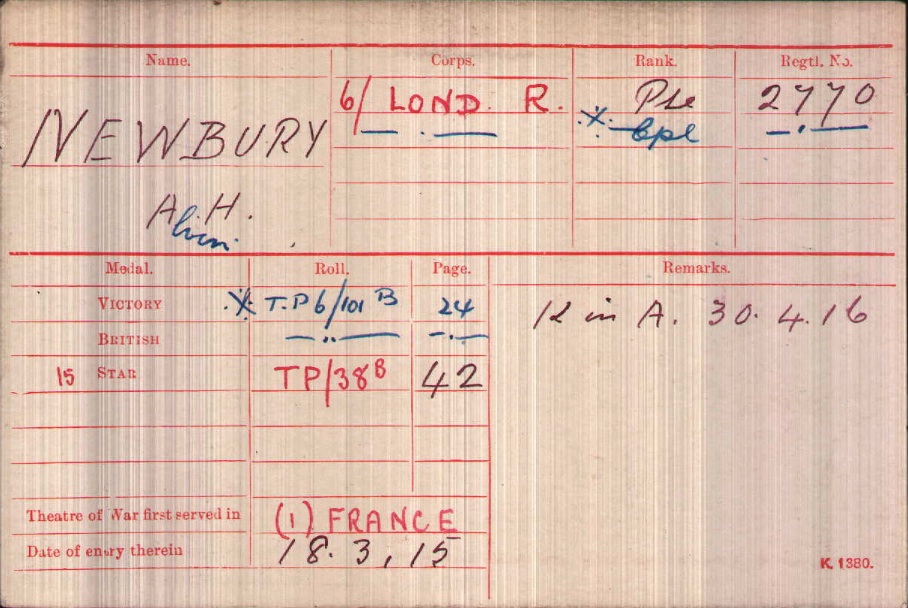 Name. Corps. Rank. Regtl. No.
NEWBURY 6/ LOND. R. Pte 2770
X Cpl
A. H.
Medal. Roll. Page. Remarks.
VICTORY X T.P 6/101 B 24 K in A. 30.4.16
BRITISH
15 STAR TP/38 B 42
Theatre of War first served in (1) FRANCE
Date of entry therein 18.3,15
K. 1380.